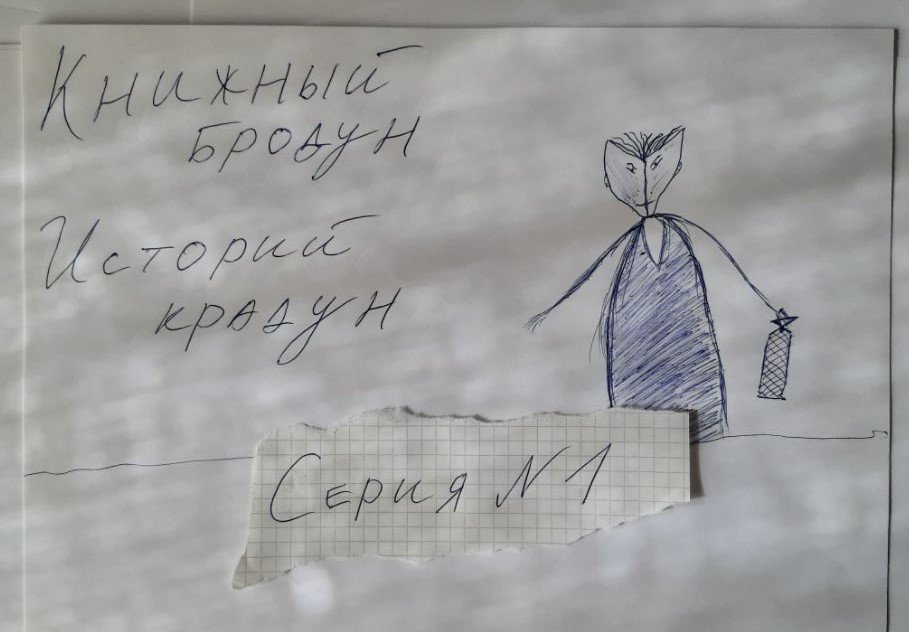 Книжный
бродун
Историй
крадун
Серия N1